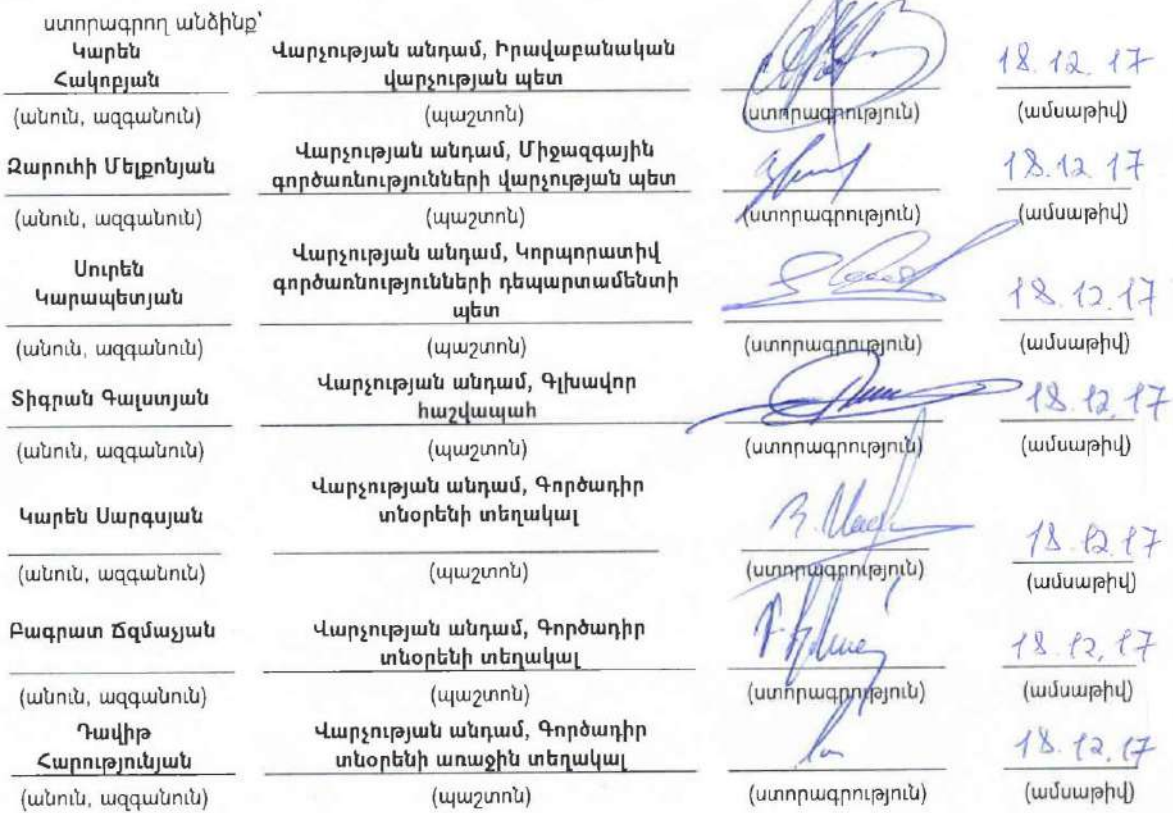 ստորագրող անձինք՝
Կարեն Վարչության անդամ, Իրավաբանական 18.12.17
Հակոբյան վարչության պետ
(անուն, ազգանուն) (պաշտոն) (ստորագրություն) (ամսաթիվ)
Զարուհի Մելքոնյան Վարչության անդամ, Միջազգային 18.12.17
գործառնությունների վարչության պետ
(անուն, ազգանուն) (պաշտոն) (ստորագրություն) (ամսաթիվ)
Սուրեն Վարչության անդամ, Կորպորատիվ
Կարապետյան գործառնությունների դեպարտամենտի 18.12.17
պետ
(անուն, ազգանուն) (պաշտոն) (ստորագրություն) (ամսաթիվ)
Տիգրան Գալստյան Վարչության անդամ, Գլխավոր 18.12.17
հաշվապահ
(անուն, ազգանուն) (պաշտոն) (ստորագրություն) (ամսաթիվ)
Կարեն Սարգսյան Վարչության անդամ, Գործադիր
տնօրենի տեղակալ 18.12.17
(անուն, ազգանուն) (պաշտոն) (ստորագրություն) (ամսաթիվ)
Բագրատ Ճզմաչյան Վարչության անդամ, Գործադիր 18.12.17
տնօրենի տեղակալ
(անուն, ազգանուն) (պաշտոն) (ստորագրություն) (ամսաթիվ)
Դավիթ Վարչության անդամ, Գործադիր 18.12.17
Հարությունյան տնօրենի առաջին տեղակալ
(անուն, ազգանուն) (պաշտոն) (ստորագրություն) (ամսաթիվ)